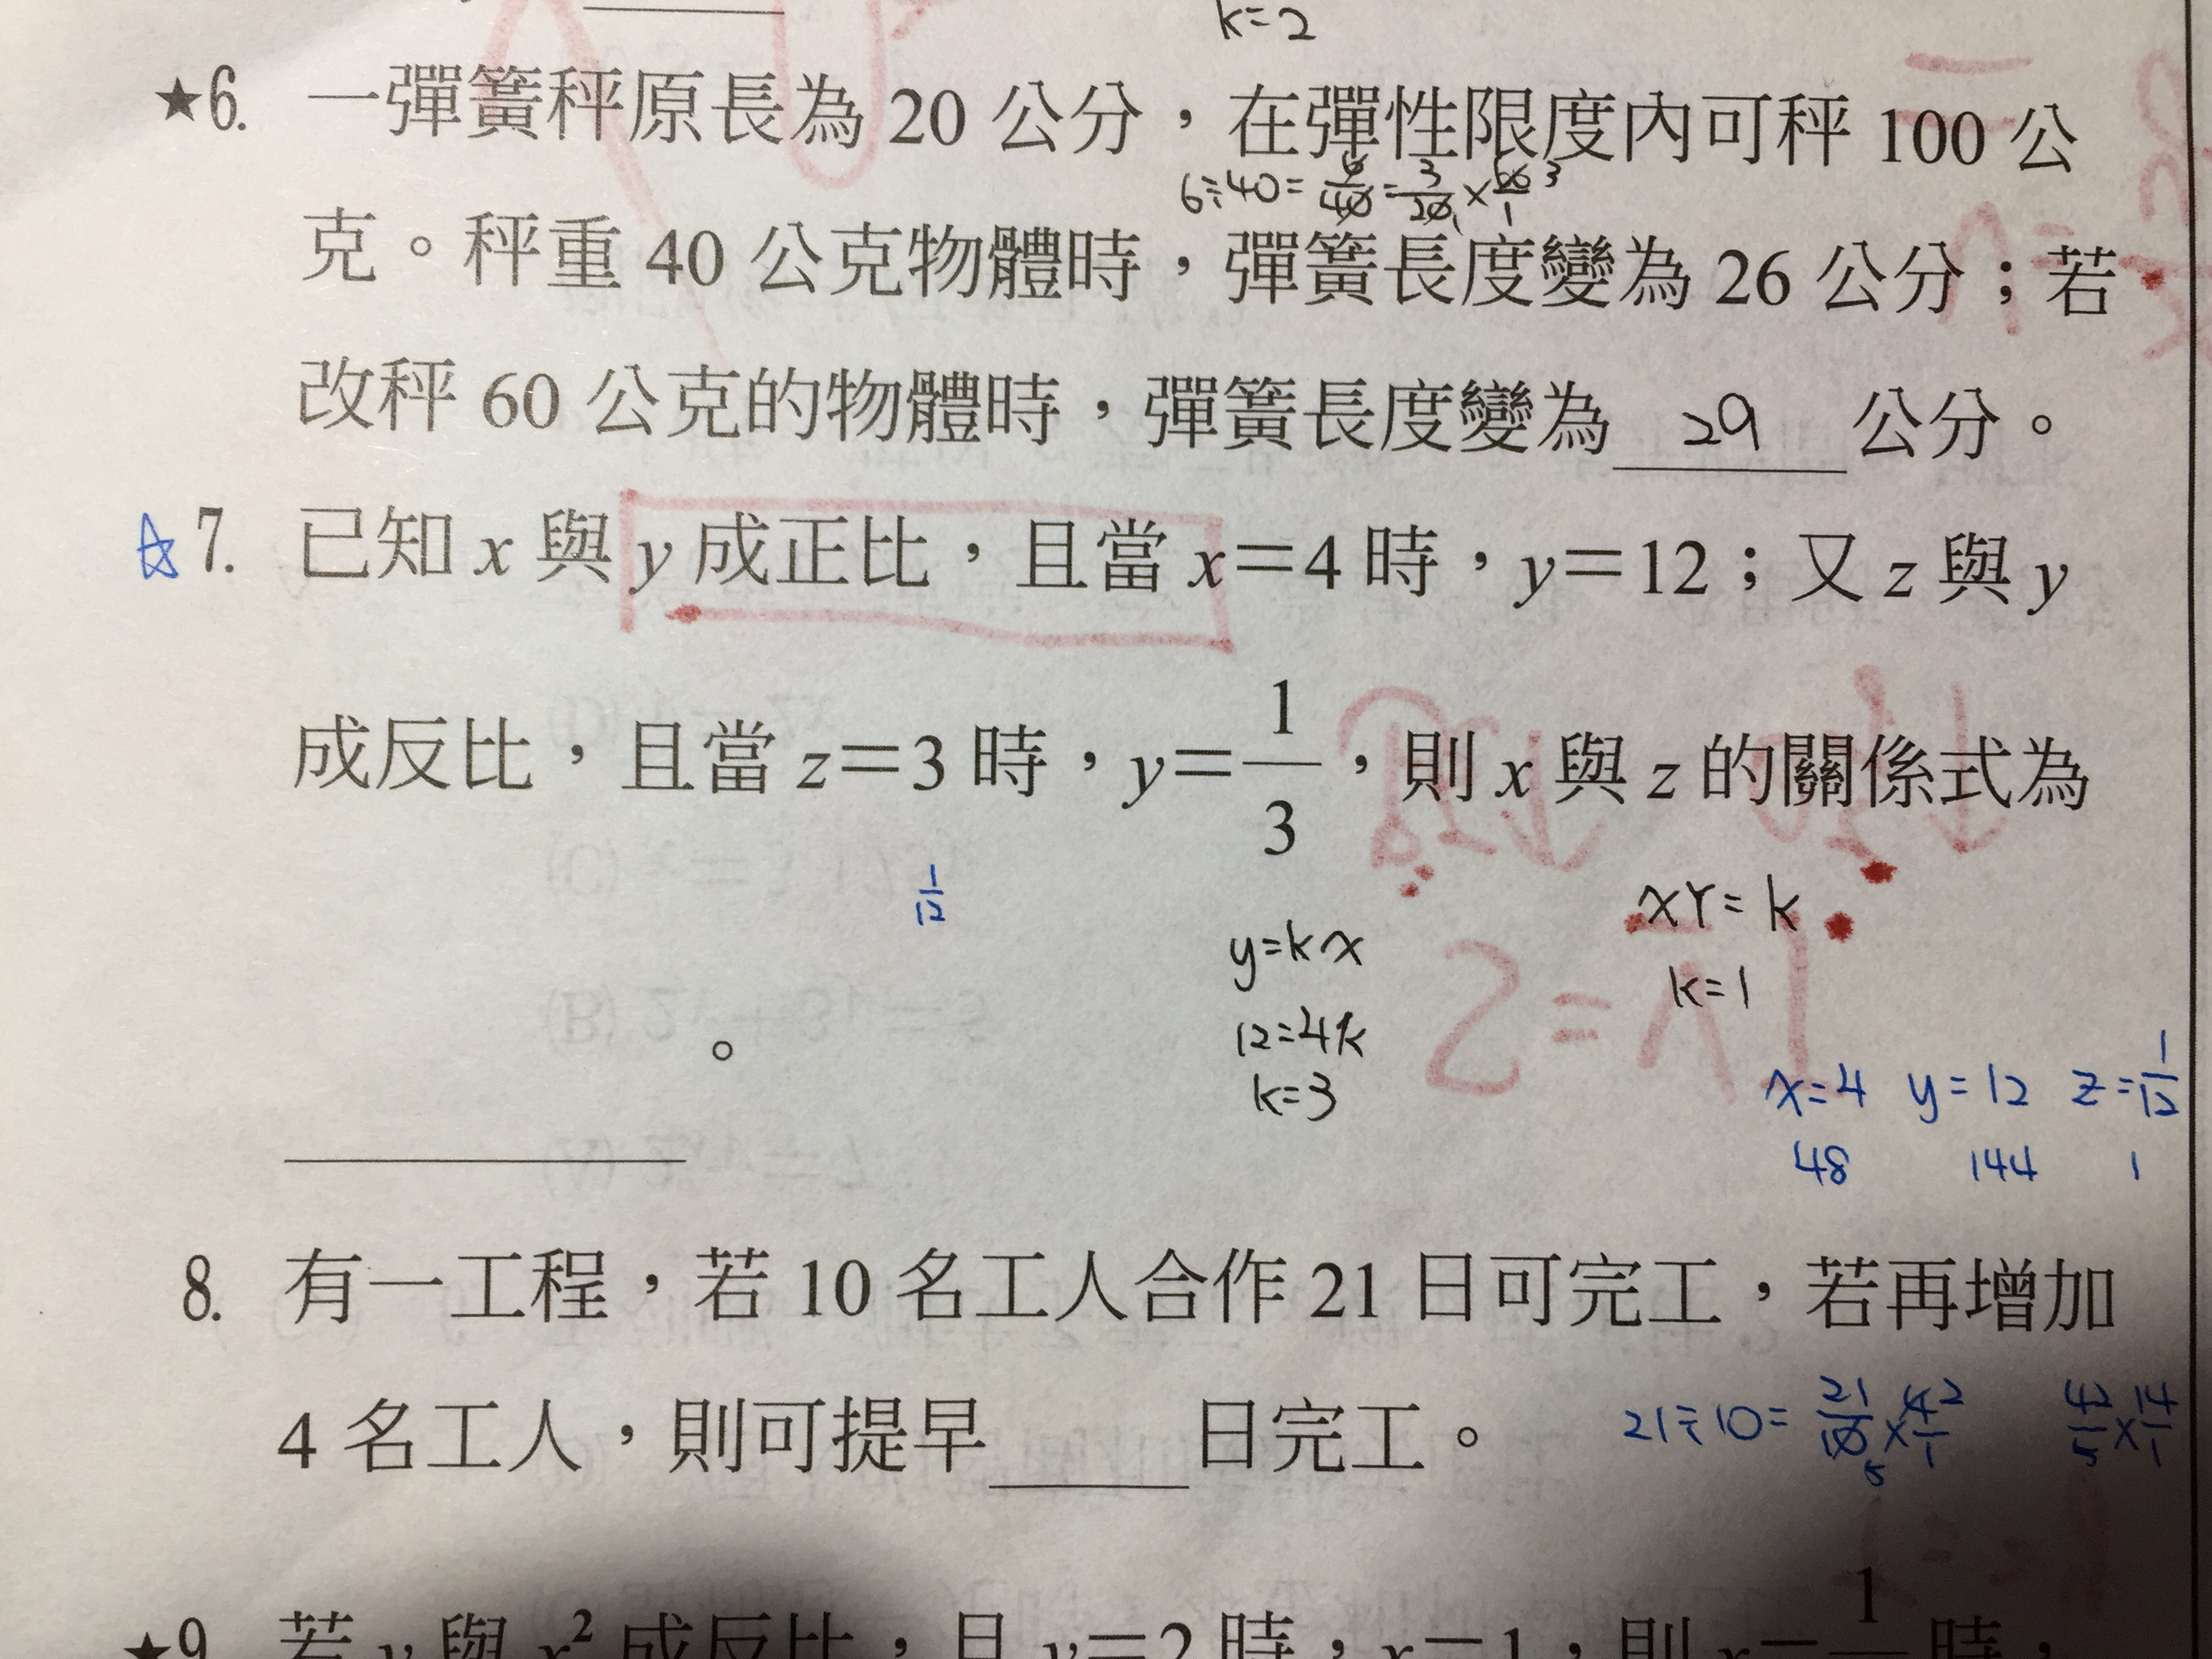 k=2
★6. 一彈簧秤原長為 20 公分，在彈性限度內可秤 100 公
6÷40= 6/40 = 3/20 × 60/1 3
克。秤重 40 公克物體時，彈簧長度變為 26 公分；若
改秤 60 公克的物體時，彈簧長度變為 29 公分。
☆7. 已知 x 與 y 成正比，且當 x=4 時，y=12；又 z 與 y
成反比，且當 z=3 時，y=1/3，則 x 與 z 的關係式為
1/12
y=kx
12=4k
k=3
xY=k
k=1
。
x=4 y=12 z=1/12
48 144 1
8. 有一工程，若 10 名工人合作 21 日可完工，若再增加
4 名工人，則可提早 日完工。
21÷10= 21/10 5 × 4/1 2
42/5 × 14/1
★9. 若 y 與 x² 成反比，且 y=2 時，x=1，則 x=1 時，